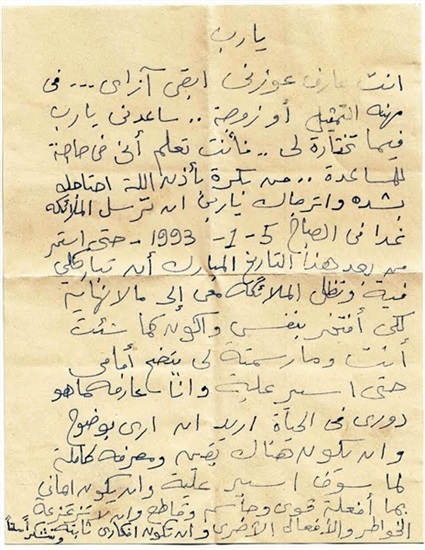 يارب
انت عارف عوزنى ابقى آزاى --- فى
مهنه التمثيل أو زوجة .. ساعدنى يارب
فيما تختارة لى .. فأنت تعلم أنى فى حاجة
للمساعدة .. من بكرة بأذن اللة احتاجك
بشده واترجاك يارب ان ترسل الملائكه
غدا فى الصباح 5-1-1993 - حتى استمر
من بعد هذا التاريخ المبارك أن تبارك لى
فية وتظل الملائكة معى إلى مالانهاية
لكى أفتخر بنفسى واكون كما شئت
أنت ومارسمتة لى يتضح أمامى
حتى اسير علية وانا عارفه ماهو
دورى فى الحياة اريد ان ارى بوضوح
وان يكون هناك يقين ومعرفه كاملة
لما سوف اسير علية وان يكون ايمانى
بما أفعلة قوى وحاسم وقاطع وان لا تزعزعة
الخواطر والأفعال الأخرى وان تكون افكارى ثابتة